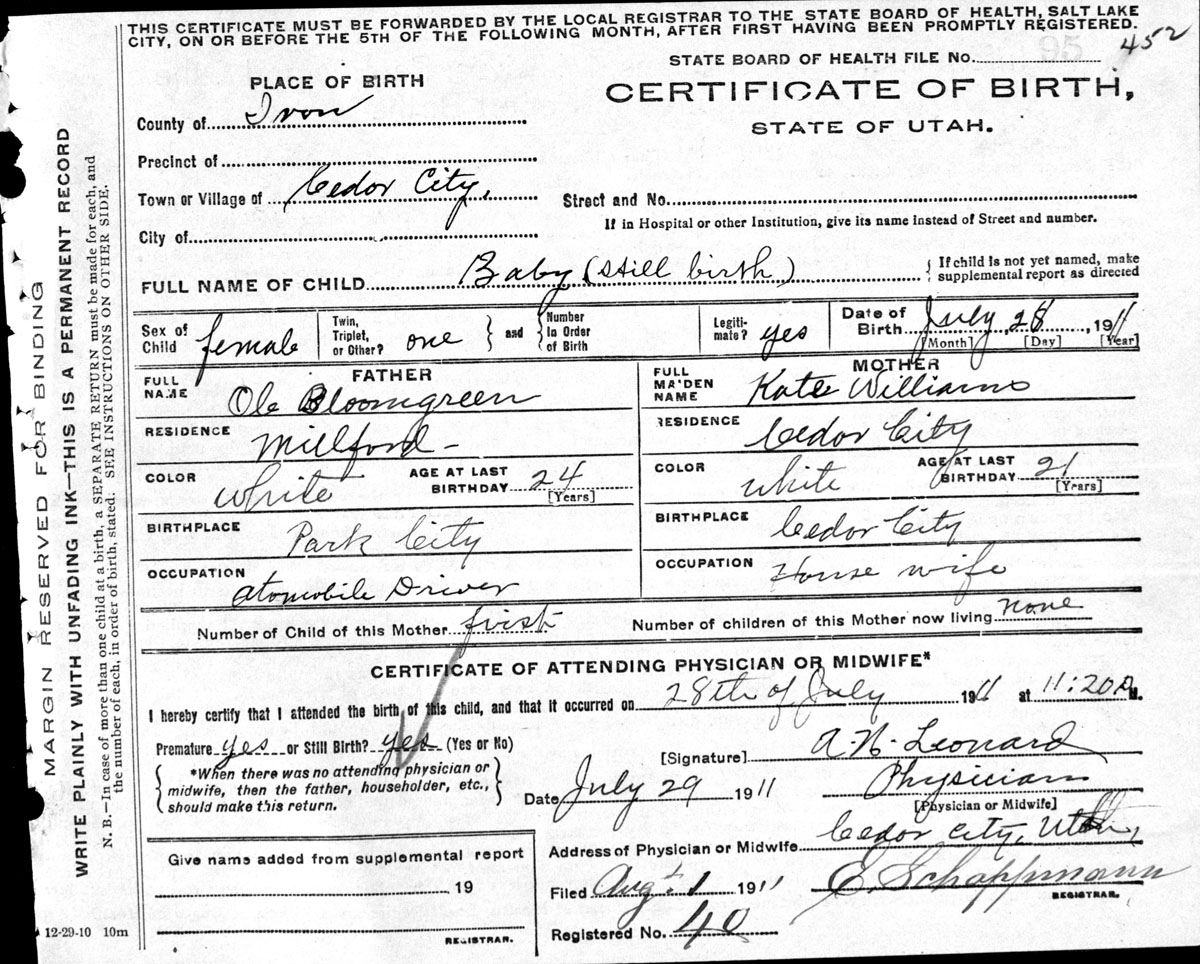 THIS CERTIFICATE MUST BE FORWARDED BY THE LOCAL REGISTRAR TO THE STATE BOARD OF HEALTH, SALT LAKE
CITY, ON OR BEFORE THE 5TH OF THE FOLLOWING MONTH, AFTER FIRST HAVING BEEN PROMPTLY REGISTERED.
452
95
STATE BOARD OF HEALTH FILE No.
CERTIFICATE OF BIRTH,
STATE OF UTAH.
PLACE OF BIRTH
County of Iron
Precinct of
Town or Village of Cedor City,
City of
Street and No.
If in Hospital or other Institution, give its name instead of Street and number.
FULL NAME OF CHILD Baby (still birth)
{ If child is not yet named, make
supplemental report as directed
Sex of
Child female
Twin,
Triplet,
or Other? one
and
Number
in Order
of Birth
Legiti-
mate? yes
Date of
Birth July, 28, 1911
[Month] [Day] [Year]
FATHER
FULL
NAME Ole Bloomgreen
RESIDENCE Millford -
COLOR White
AGE AT LAST
BIRTHDAY 24
[Years]
BIRTHPLACE Park City
OCCUPATION atomobile Driver
MOTHER
FULL
MAIDEN
NAME Kate Williams
RESIDENCE Cedor City
COLOR White
AGE AT LAST
BIRTHDAY 21
[Years]
BIRTHPLACE Cedor City
OCCUPATION House wife
Number of Child of this Mother first
Number of children of this Mother now living none
CERTIFICATE OF ATTENDING PHYSICIAN OR MIDWIFE*
I hereby certify that I attended the birth of this child, and that it occurred on 28th of July 1911 at 11:20 A M.
Premature yes or Still Birth? yes (Yes or No)
*When there was no attending physician or
midwife, then the father, householder, etc.,
should make this return.
[Signature] A. N. Leonard
Date July 29 1911
Physician
[Physician or Midwife]
Address of Physician or Midwife Cedor City, Utah,
Give name added from supplemental report
19
REGISTRAR.
Filed Augt. 1 1911
E. Schoppmann
REGISTRAR.
Registered No. 40
12-29-10 10m
MARGIN RESERVED FOR BINDING
WRITE PLAINLY WITH UNFADING INK—THIS IS A PERMANENT RECORD
N. B.—In case of more than one child at a birth, a SEPARATE RETURN must be made for each, and
the number of each, in order of birth, stated. SEE INSTRUCTIONS ON OTHER SIDE.